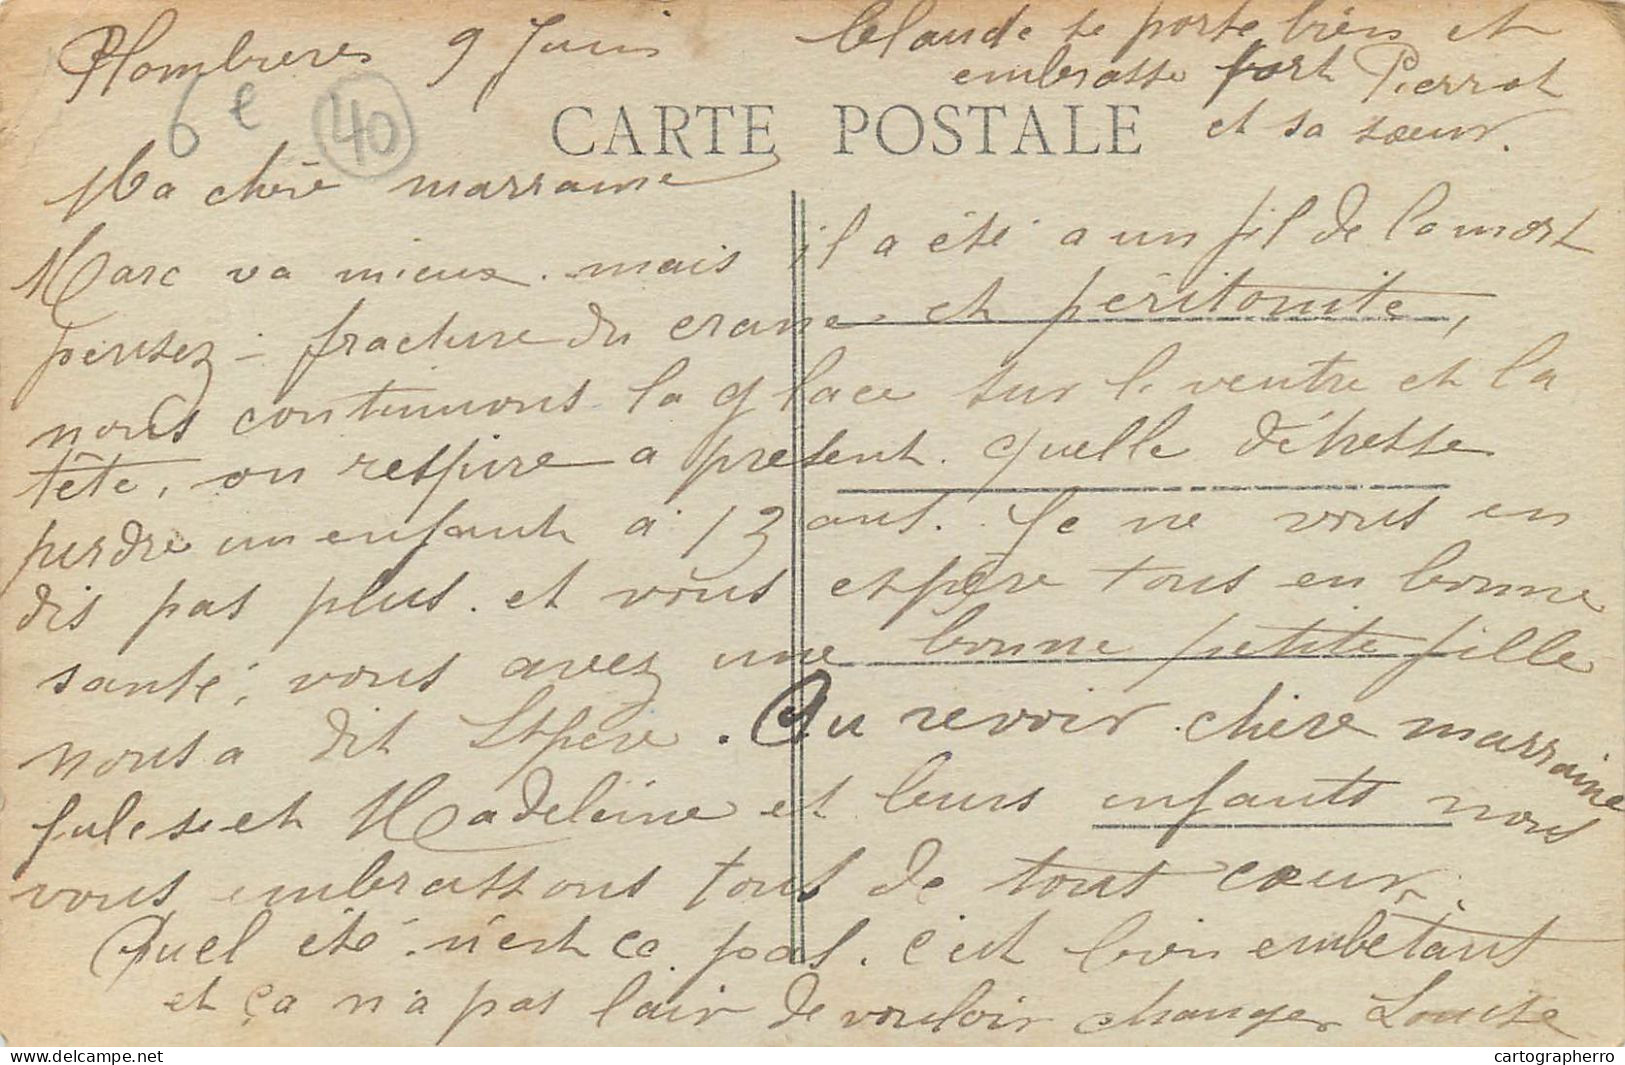 Plombieres 9 Juin
Claude se porte bien et
embrasse fort Pierrot
et sa sœur.
6 e
40
CARTE POSTALE
Ma chère marraine
Marc va mieux. mais il a été a un fil de la mort
pensez - fracture du crane et péritonite,
nous continuons la glace sur le ventre et la
tête, on respire a present. quelle détresse
perdre un enfant à 13 ans. Je ne vous en
dis pas plus. et vous espère tous en bonne
santé, vous avez une bonne petite fille
nous a dit St père. Au revoir chère marraine
Jules et Madeleine et leurs enfants nous
vous embrassons tous de tout cœur.
Quel été n'est ce pas. c'est bien embêtant
et ça n'a pas l'air de vouloir changer Louise
cartographerro